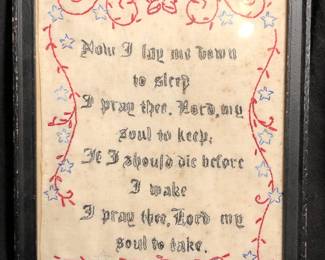 Now I lay me down
to sleep
I pray thee, Lord, my
soul to keep;
If I should die before
I wake
I pray thee, Lord my
soul to take.